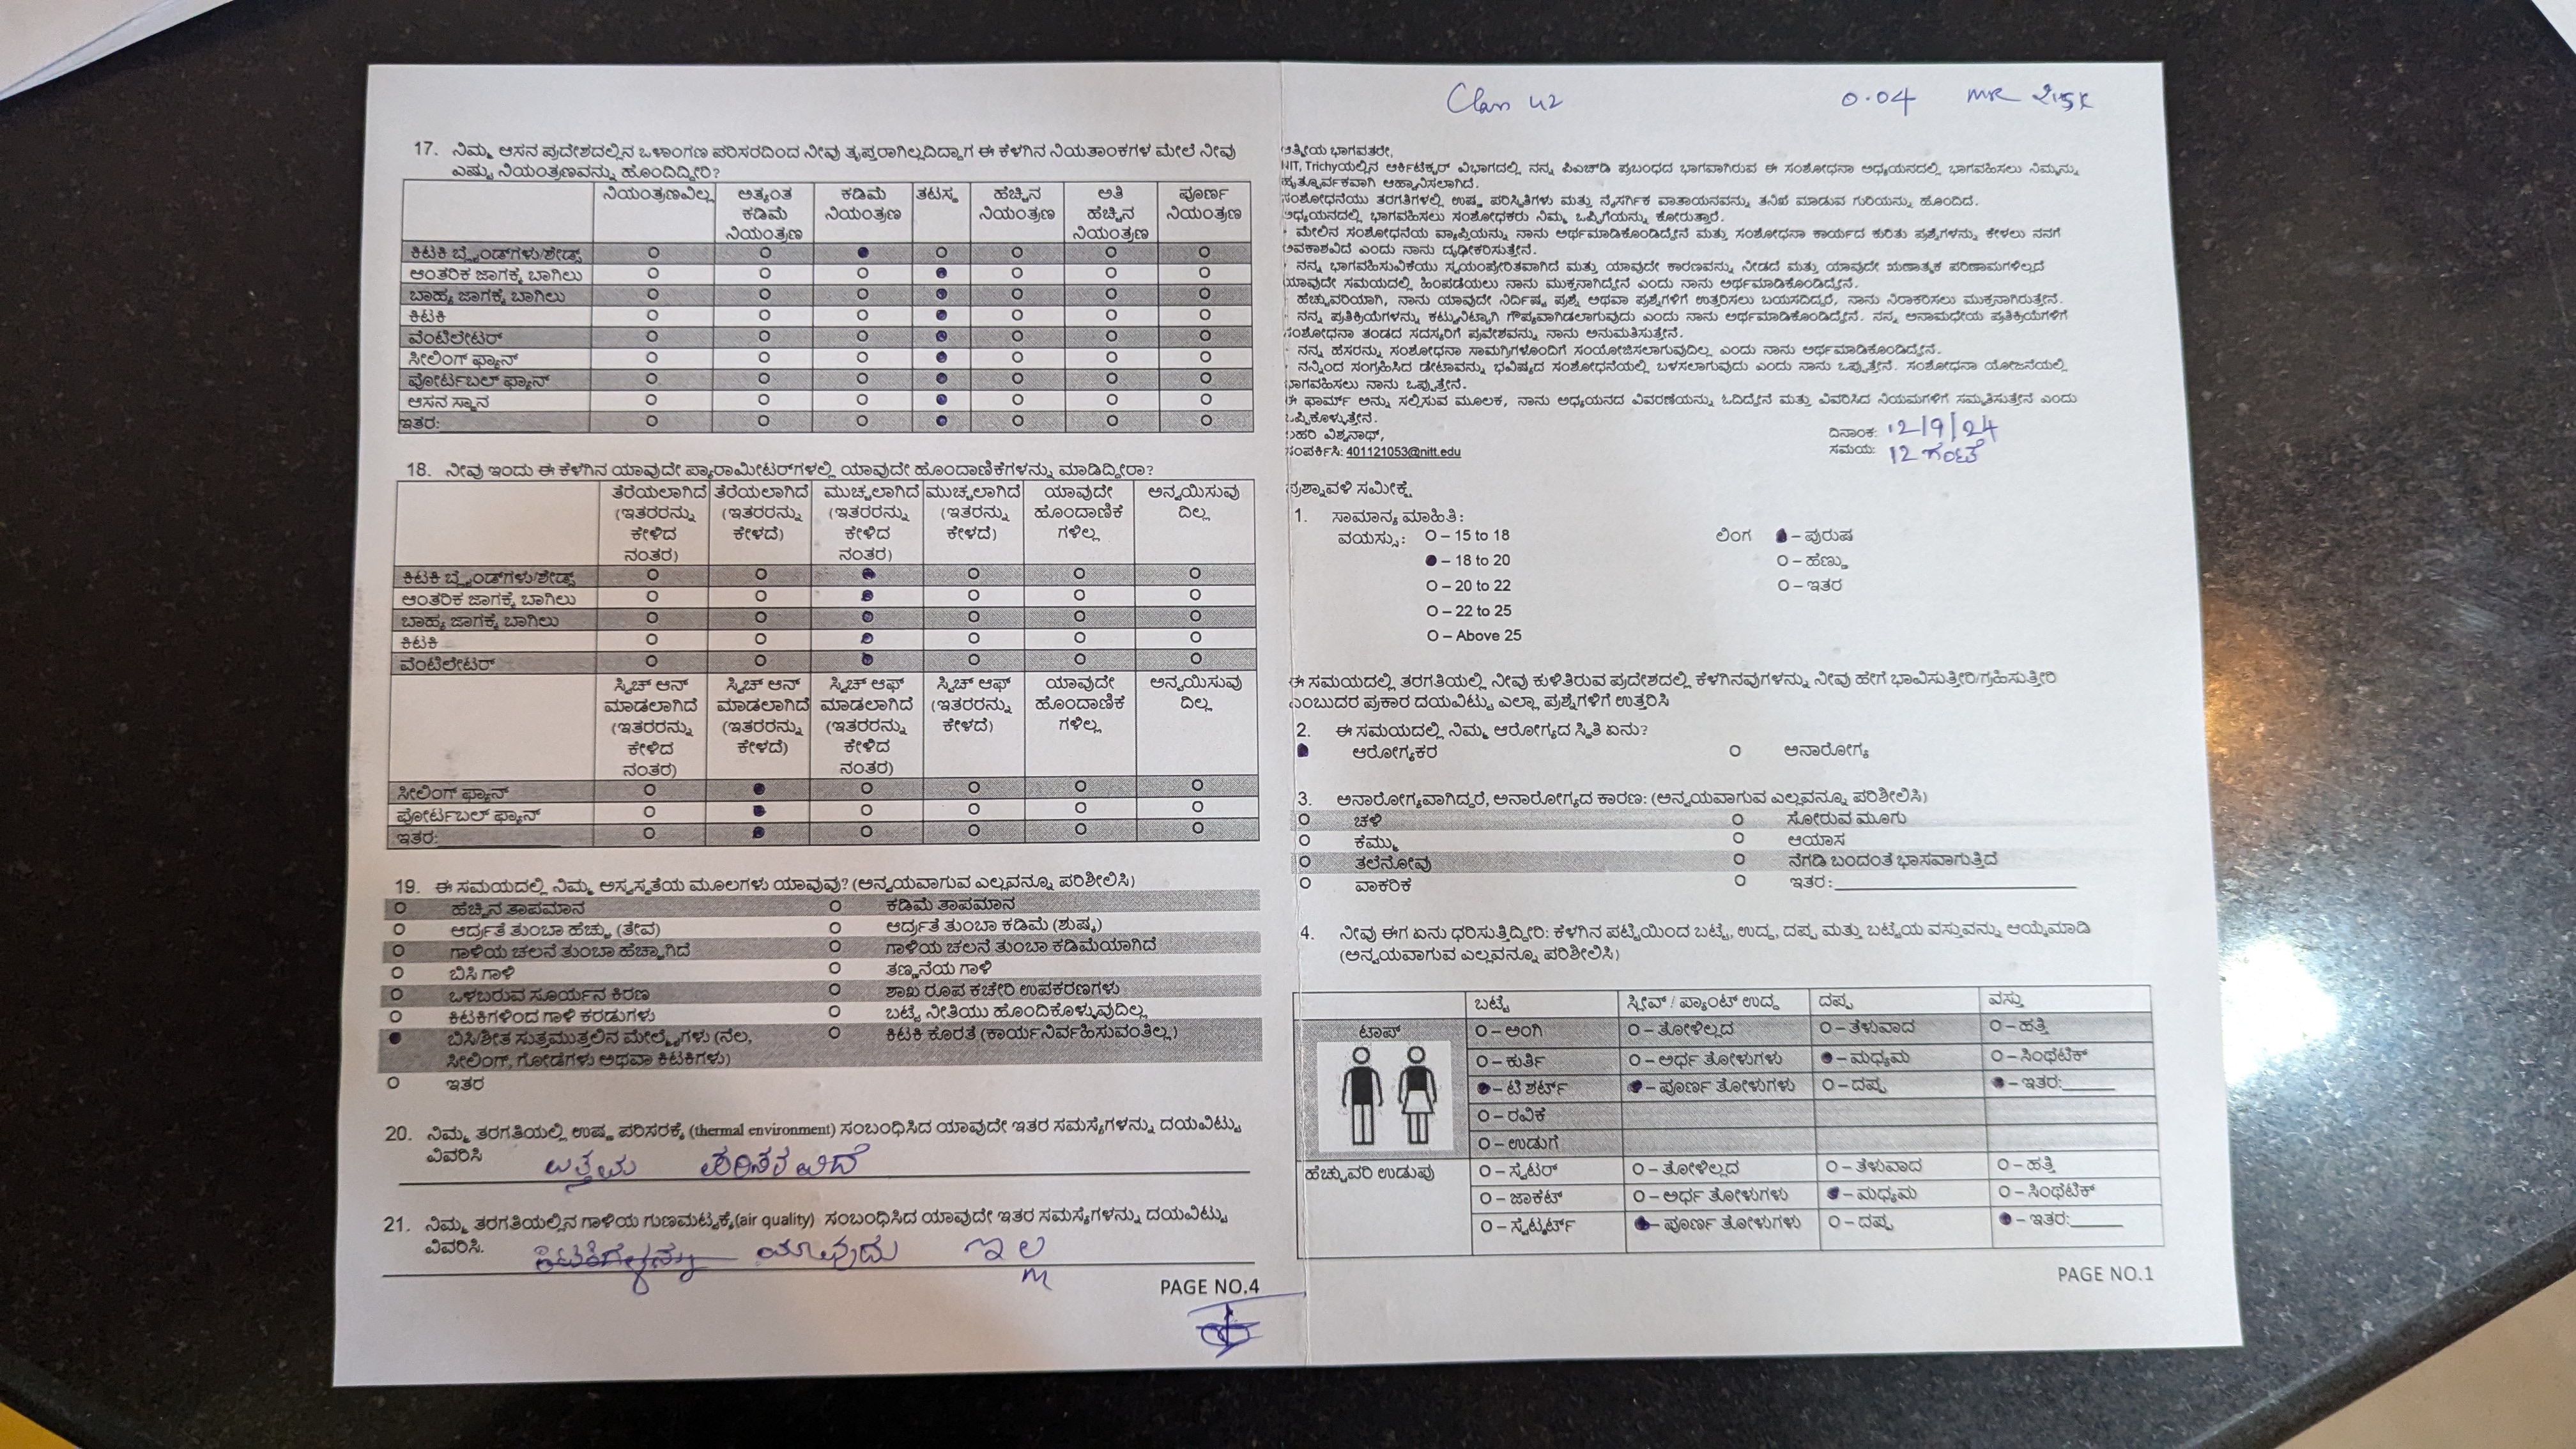 17. ನಿಮ್ಮ ಆಸನ ಪ್ರದೇಶದಲ್ಲಿನ ಒಳಾಂಗಣ ಪರಿಸರದಿಂದ ನೀವು ತೃಪ್ತರಾಗಿಲ್ಲದಿದ್ದಾಗ ಈ ಕೆಳಗಿನ ನಿಯತಾಂಕಗಳ ಮೇಲೆ ನೀವು
ಎಷ್ಟು ನಿಯಂತ್ರಣವನ್ನು ಹೊಂದಿದ್ದೀರಿ?
ನಿಯಂತ್ರಣವಿಲ್ಲ ಅತ್ಯಂತ ಕಡಿಮೆ ನಿಯಂತ್ರಣ ಕಡಿಮೆ ನಿಯಂತ್ರಣ ತಟಸ್ಥ ಹೆಚ್ಚಿನ ನಿಯಂತ್ರಣ ಅತಿ ಹೆಚ್ಚಿನ ನಿಯಂತ್ರಣ ಪೂರ್ಣ ನಿಯಂತ್ರಣ
ಕಿಟಕಿ ಬ್ಲೈಂಡ್‌ಗಳು/ಶೇಡ್ಸ್
ಆಂತರಿಕ ಜಾಗಕ್ಕೆ ಬಾಗಿಲು
ಬಾಹ್ಯ ಜಾಗಕ್ಕೆ ಬಾಗಿಲು
ಕಿಟಕಿ
ವೆಂಟಿಲೇಟರ್
ಸೀಲಿಂಗ್ ಫ್ಯಾನ್
ಪೋರ್ಟಬಲ್ ಫ್ಯಾನ್
ಆಸನ ಸ್ಥಾನ
ಇತರ:
18. ನೀವು ಇಂದು ಈ ಕೆಳಗಿನ ಯಾವುದೇ ಪ್ಯಾರಾಮೀಟರ್‌ಗಳಲ್ಲಿ ಯಾವುದೇ ಹೊಂದಾಣಿಕೆಗಳನ್ನು ಮಾಡಿದ್ದೀರಾ?
ತೆರೆಯಲಾಗಿದೆ (ಇತರರನ್ನು ಕೇಳಿದ ನಂತರ) ತೆರೆಯಲಾಗಿದೆ (ಇತರರನ್ನು ಕೇಳದೆ) ಮುಚ್ಚಲಾಗಿದೆ (ಇತರರನ್ನು ಕೇಳಿದ ನಂತರ) ಮುಚ್ಚಲಾಗಿದೆ (ಇತರನ್ನು ಕೇಳದೆ) ಯಾವುದೇ ಹೊಂದಾಣಿಕೆ ಗಳಿಲ್ಲ ಅನ್ವಯಿಸುವು ದಿಲ್ಲ
ಕಿಟಕಿ ಬ್ಲೈಂಡ್‌ಗಳು/ಶೇಡ್ಸ್
ಆಂತರಿಕ ಜಾಗಕ್ಕೆ ಬಾಗಿಲು
ಬಾಹ್ಯ ಜಾಗಕ್ಕೆ ಬಾಗಿಲು
ಕಿಟಕಿ
ವೆಂಟಿಲೇಟರ್
ಸ್ವಿಚ್ ಆನ್ ಮಾಡಲಾಗಿದೆ (ಇತರರನ್ನು ಕೇಳಿದ ನಂತರ) ಸ್ವಿಚ್ ಆನ್ ಮಾಡಲಾಗಿದೆ (ಇತರರನ್ನು ಕೇಳದೆ) ಸ್ವಿಚ್ ಆಫ್ ಮಾಡಲಾಗಿದೆ (ಇತರರನ್ನು ಕೇಳಿದ ನಂತರ) ಸ್ವಿಚ್ ಆಫ್ (ಇತರರನ್ನು ಕೇಳದೆ) ಯಾವುದೇ ಹೊಂದಾಣಿಕೆ ಗಳಿಲ್ಲ ಅನ್ವಯಿಸುವು ದಿಲ್ಲ
ಸೀಲಿಂಗ್ ಫ್ಯಾನ್
ಪೋರ್ಟಬಲ್ ಫ್ಯಾನ್
ಇತರ:
19. ಈ ಸಮಯದಲ್ಲಿ ನಿಮ್ಮ ಅಸ್ವಸ್ಥತೆಯ ಮೂಲಗಳು ಯಾವುವು? (ಅನ್ವಯವಾಗುವ ಎಲ್ಲವನ್ನೂ ಪರಿಶೀಲಿಸಿ)
ಹೆಚ್ಚಿನ ತಾಪಮಾನ ಕಡಿಮೆ ತಾಪಮಾನ
ಆರ್ದ್ರತೆ ತುಂಬಾ ಹೆಚ್ಚು (ತೇವ) ಆರ್ದ್ರತೆ ತುಂಬಾ ಕಡಿಮೆ (ಶುಷ್ಕ)
ಗಾಳಿಯ ಚಲನೆ ತುಂಬಾ ಹೆಚ್ಚಾಗಿದೆ ಗಾಳಿಯ ಚಲನೆ ತುಂಬಾ ಕಡಿಮೆಯಾಗಿದೆ
ಬಿಸಿ ಗಾಳಿ ತಣ್ಣನೆಯ ಗಾಳಿ
ಒಳಬರುವ ಸೂರ್ಯನ ಕಿರಣ ಶಾಖ ರೂಪ ಕಚೇರಿ ಉಪಕರಣಗಳು
ಕಿಟಕಿಗಳಿಂದ ಗಾಳಿ ಕರಡುಗಳು ಬಟ್ಟೆ ನೀತಿಯು ಹೊಂದಿಕೊಳ್ಳುವುದಿಲ್ಲ
ಬಿಸಿ/ಶೀತ ಸುತ್ತಮುತ್ತಲಿನ ಮೇಲ್ಮೈಗಳು (ನೆಲ, ಕಿಟಕಿ ಕೊರತೆ (ಕಾರ್ಯನಿರ್ವಹಿಸುವಂತಿಲ್ಲ)
ಸೀಲಿಂಗ್, ಗೋಡೆಗಳು ಅಥವಾ ಕಿಟಕಿಗಳು)
ಇತರ
20. ನಿಮ್ಮ ತರಗತಿಯಲ್ಲಿ ಉಷ್ಣ ಪರಿಸರಕ್ಕೆ (thermal environment) ಸಂಬಂಧಿಸಿದ ಯಾವುದೇ ಇತರ ಸಮಸ್ಯೆಗಳನ್ನು ದಯವಿಟ್ಟು
ವಿವರಿಸಿ ಉತ್ತಮ ಪರಿಸರವಿದೆ
21. ನಿಮ್ಮ ತರಗತಿಯಲ್ಲಿನ ಗಾಳಿಯ ಗುಣಮಟ್ಟಕ್ಕೆ(air quality) ಸಂಬಂಧಿಸಿದ ಯಾವುದೇ ಇತರ ಸಮಸ್ಯೆಗಳನ್ನು ದಯವಿಟ್ಟು
ವಿವರಿಸಿ. ಕಿಟಕಿಗಳನ್ನು ಯಾವುದು ಇಲ್ಲ
PAGE NO.4
Class 42 0.04 MR
ಆತ್ಮೀಯ ಭಾಗವತರೇ,
NIT, Trichyಯಲ್ಲಿನ ಆರ್ಕಿಟೆಕ್ಚರ್ ವಿಭಾಗದಲ್ಲಿ ನನ್ನ ಪಿಎಚ್‌ಡಿ ಪ್ರಬಂಧದ ಭಾಗವಾಗಿರುವ ಈ ಸಂಶೋಧನಾ ಅಧ್ಯಯನದಲ್ಲಿ ಭಾಗವಹಿಸಲು ನಿಮ್ಮನ್ನು
ಹೃತ್ಪೂರ್ವಕವಾಗಿ ಆಹ್ವಾನಿಸಲಾಗಿದೆ.
ಸಂಶೋಧನೆಯು ತರಗತಿಗಳಲ್ಲಿ ಉಷ್ಣ ಪರಿಸ್ಥಿತಿಗಳು ಮತ್ತು ನೈಸರ್ಗಿಕ ವಾತಾಯನವನ್ನು ತನಿಖೆ ಮಾಡುವ ಗುರಿಯನ್ನು ಹೊಂದಿದೆ.
ಅಧ್ಯಯನದಲ್ಲಿ ಭಾಗವಹಿಸಲು ಸಂಶೋಧಕರು ನಿಮ್ಮ ಒಪ್ಪಿಗೆಯನ್ನು ಕೋರುತ್ತಾರೆ.
· ಮೇಲಿನ ಸಂಶೋಧನೆಯ ವ್ಯಾಪ್ತಿಯನ್ನು ನಾನು ಅರ್ಥಮಾಡಿಕೊಂಡಿದ್ದೇನೆ ಮತ್ತು ಸಂಶೋಧನಾ ಕಾರ್ಯದ ಕುರಿತು ಪ್ರಶ್ನೆಗಳನ್ನು ಕೇಳಲು ನನಗೆ
ಅವಕಾಶವಿದೆ ಎಂದು ನಾನು ದೃಢೀಕರಿಸುತ್ತೇನೆ.
· ನನ್ನ ಭಾಗವಹಿಸುವಿಕೆಯು ಸ್ವಯಂಪ್ರೇರಿತವಾಗಿದೆ ಮತ್ತು ಯಾವುದೇ ಕಾರಣವನ್ನು ನೀಡದೆ ಮತ್ತು ಯಾವುದೇ ಋಣಾತ್ಮಕ ಪರಿಣಾಮಗಳಿಲ್ಲದೆ
ಯಾವುದೇ ಸಮಯದಲ್ಲಿ ಹಿಂಪಡೆಯಲು ನಾನು ಮುಕ್ತನಾಗಿದ್ದೇನೆ ಎಂದು ನಾನು ಅರ್ಥಮಾಡಿಕೊಂಡಿದ್ದೇನೆ.
· ಹೆಚ್ಚುವರಿಯಾಗಿ, ನಾನು ಯಾವುದೇ ನಿರ್ದಿಷ್ಟ ಪ್ರಶ್ನೆ ಅಥವಾ ಪ್ರಶ್ನೆಗಳಿಗೆ ಉತ್ತರಿಸಲು ಬಯಸದಿದ್ದರೆ, ನಾನು ನಿರಾಕರಿಸಲು ಮುಕ್ತನಾಗಿರುತ್ತೇನೆ.
· ನನ್ನ ಪ್ರತಿಕ್ರಿಯೆಗಳನ್ನು ಕಟ್ಟುನಿಟ್ಟಾಗಿ ಗೌಪ್ಯವಾಗಿಡಲಾಗುವುದು ಎಂದು ನಾನು ಅರ್ಥಮಾಡಿಕೊಂಡಿದ್ದೇನೆ. ನನ್ನ ಅನಾಮಧೇಯ ಪ್ರತಿಕ್ರಿಯೆಗಳಿಗೆ
ಸಂಶೋಧನಾ ತಂಡದ ಸದಸ್ಯರಿಗೆ ಪ್ರವೇಶವನ್ನು ನಾನು ಅನುಮತಿಸುತ್ತೇನೆ.
· ನನ್ನ ಹೆಸರನ್ನು ಸಂಶೋಧನಾ ಸಾಮಗ್ರಿಗಳೊಂದಿಗೆ ಸಂಯೋಜಿಸಲಾಗುವುದಿಲ್ಲ ಎಂದು ನಾನು ಅರ್ಥಮಾಡಿಕೊಂಡಿದ್ದೇನೆ.
· ನನ್ನಿಂದ ಸಂಗ್ರಹಿಸಿದ ಡೇಟಾವನ್ನು ಭವಿಷ್ಯದ ಸಂಶೋಧನೆಯಲ್ಲಿ ಬಳಸಲಾಗುವುದು ಎಂದು ನಾನು ಒಪ್ಪುತ್ತೇನೆ. ಸಂಶೋಧನಾ ಯೋಜನೆಯಲ್ಲಿ
ಭಾಗವಹಿಸಲು ನಾನು ಒಪ್ಪುತ್ತೇನೆ.
ಈ ಫಾರ್ಮ್ ಅನ್ನು ಸಲ್ಲಿಸುವ ಮೂಲಕ, ನಾನು ಅಧ್ಯಯನದ ವಿವರಣೆಯನ್ನು ಓದಿದ್ದೇನೆ ಮತ್ತು ವಿವರಿಸಿದ ನಿಯಮಗಳಿಗೆ ಸಮ್ಮತಿಸುತ್ತೇನೆ ಎಂದು
ಒಪ್ಪಿಕೊಳ್ಳುತ್ತೇನೆ.
ವಿಶ್ವನಾಥ್, ದಿನಾಂಕ: 12/9/24
ಸಂಪರ್ಕಿಸಿ: 401121053@nitt.edu ಸಮಯ: 12 ಗಂಟೆ
ಪ್ರಶ್ನಾವಳಿ ಸಮೀಕ್ಷೆ
1. ಸಾಮಾನ್ಯ ಮಾಹಿತಿ:
ವಯಸ್ಸು: – 15 to 18 ಲಿಂಗ – ಪುರುಷ
– 18 to 20 – ಹೆಣ್ಣು
– 20 to 22 – ಇತರ
– 22 to 25
– Above 25
ಈ ಸಮಯದಲ್ಲಿ ತರಗತಿಯಲ್ಲಿ ನೀವು ಕುಳಿತಿರುವ ಪ್ರದೇಶದಲ್ಲಿ ಕೆಳಗಿನವುಗಳನ್ನು ನೀವು ಹೇಗೆ ಭಾವಿಸುತ್ತೀರಿ/ಗ್ರಹಿಸುತ್ತೀರಿ
ಎಂಬುದರ ಪ್ರಕಾರ ದಯವಿಟ್ಟು ಎಲ್ಲಾ ಪ್ರಶ್ನೆಗಳಿಗೆ ಉತ್ತರಿಸಿ
2. ಈ ಸಮಯದಲ್ಲಿ ನಿಮ್ಮ ಆರೋಗ್ಯದ ಸ್ಥಿತಿ ಏನು?
ಆರೋಗ್ಯಕರ ಅನಾರೋಗ್ಯ
3. ಅನಾರೋಗ್ಯವಾಗಿದ್ದರೆ, ಅನಾರೋಗ್ಯದ ಕಾರಣ: (ಅನ್ವಯವಾಗುವ ಎಲ್ಲವನ್ನೂ ಪರಿಶೀಲಿಸಿ)
ಚಳಿ ಸೋರುವ ಮೂಗು
ಕೆಮ್ಮು ಆಯಾಸ
ತಲೆನೋವು ನೆಗಡಿ ಬಂದಂತೆ ಭಾಸವಾಗುತ್ತಿದೆ
ವಾಕರಿಕೆ ಇತರ:
4. ನೀವು ಈಗ ಏನು ಧರಿಸುತ್ತಿದ್ದೀರಿ: ಕೆಳಗಿನ ಪಟ್ಟಿಯಿಂದ ಬಟ್ಟೆ, ಉದ್ದ, ದಪ್ಪ ಮತ್ತು ಬಟ್ಟೆಯ ವಸ್ತುವನ್ನು ಆಯ್ಕೆಮಾಡಿ
(ಅನ್ವಯವಾಗುವ ಎಲ್ಲವನ್ನೂ ಪರಿಶೀಲಿಸಿ)
ಬಟ್ಟೆ ಸ್ಲೀವ್ / ಪ್ಯಾಂಟ್ ಉದ್ದ ದಪ್ಪ ವಸ್ತು
ಟಾಪ್ – ಅಂಗಿ – ತೋಳಿಲ್ಲದ – ತೆಳುವಾದ – ಹತ್ತಿ
– ಕುರ್ತಿ – ಅರ್ಧ ತೋಳುಗಳು – ಮಧ್ಯಮ – ಸಿಂಥೆಟಿಕ್
– ಟಿ ಶರ್ಟ್ – ಪೂರ್ಣ ತೋಳುಗಳು – ದಪ್ಪ – ಇತರ:
– ರವಿಕೆ
– ಉಡುಗೆ
ಹೆಚ್ಚುವರಿ ಉಡುಪು – ಸ್ವೆಟರ್ – ತೋಳಿಲ್ಲದ – ತೆಳುವಾದ – ಹತ್ತಿ
– ಜಾಕೆಟ್ – ಅರ್ಧ ತೋಳುಗಳು – ಮಧ್ಯಮ – ಸಿಂಥೆಟಿಕ್
– ಸ್ವೆಟ್ಶರ್ಟ್ – ಪೂರ್ಣ ತೋಳುಗಳು – ದಪ್ಪ – ಇತರ:
PAGE NO.1